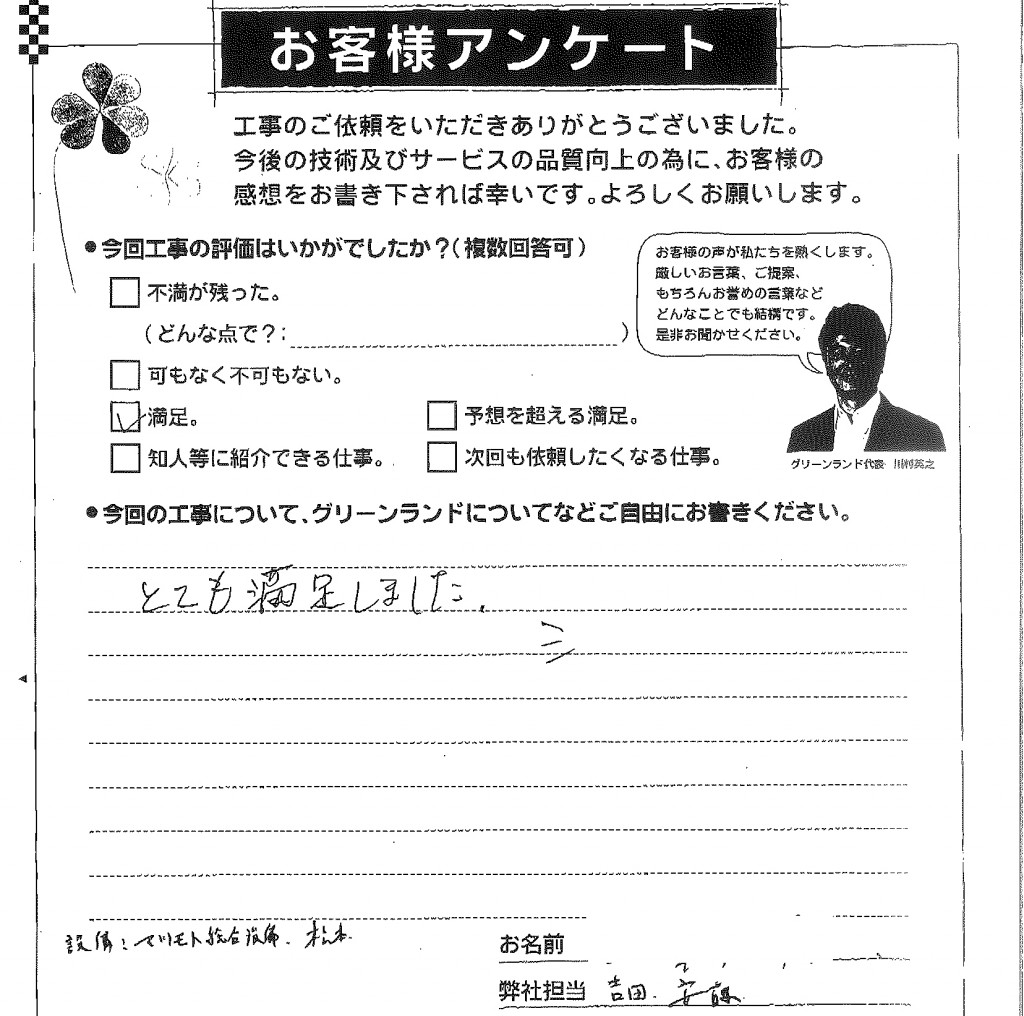 お客様アンケート
工事のご依頼をいただきありがとうございました。
今後の技術及びサービスの品質向上の為に、お客様の
感想をお書き下されば幸いです。よろしくお願いします。
●今回工事の評価はいかがでしたか？(複数回答可)
不満が残った。
(どんな点で？: )
可もなく不可もない。
満足。
予想を超える満足。
知人等に紹介できる仕事。
次回も依頼したくなる仕事。
お客様の声が私たちを熱くします。
厳しいお言葉、ご提案、
もちろんお誉めの言葉など
どんなことでも結構です。
是非お聞かせください。
グリーンランド代表 川村英之
●今回の工事について、グリーンランドについてなどご自由にお書きください。
とても満足しました.
設備：マツモト総合設備. 松本
お名前
弊社担当 吉田. 安藤